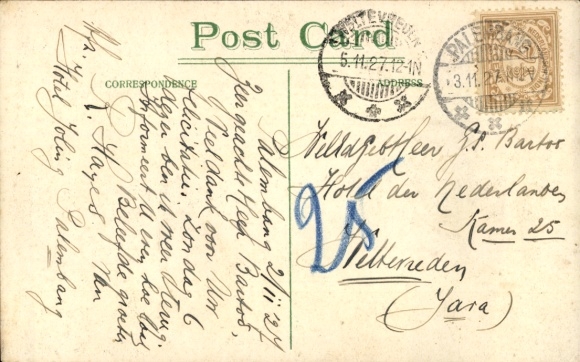 Post Card
CORRESPONDENCE
ADDRESS
WELTEVREDEN
5.11.27.12-1N
PALEMBANG
3.11.27
Palembang 2/11 27
Zeer geachte Heer Bartos,
Veel dank voor Uw
felicitatie. Zondag 6
dezer ben ik weer terug;
informeert U eens hoe laat
Beleefde groeten
van
A. Hayes.
Hotel Johns Palembang
WelEdGebHeer G. Bartos
Hotel der Nederlanden
Kamer 25
Weltevreden
(Java)
25